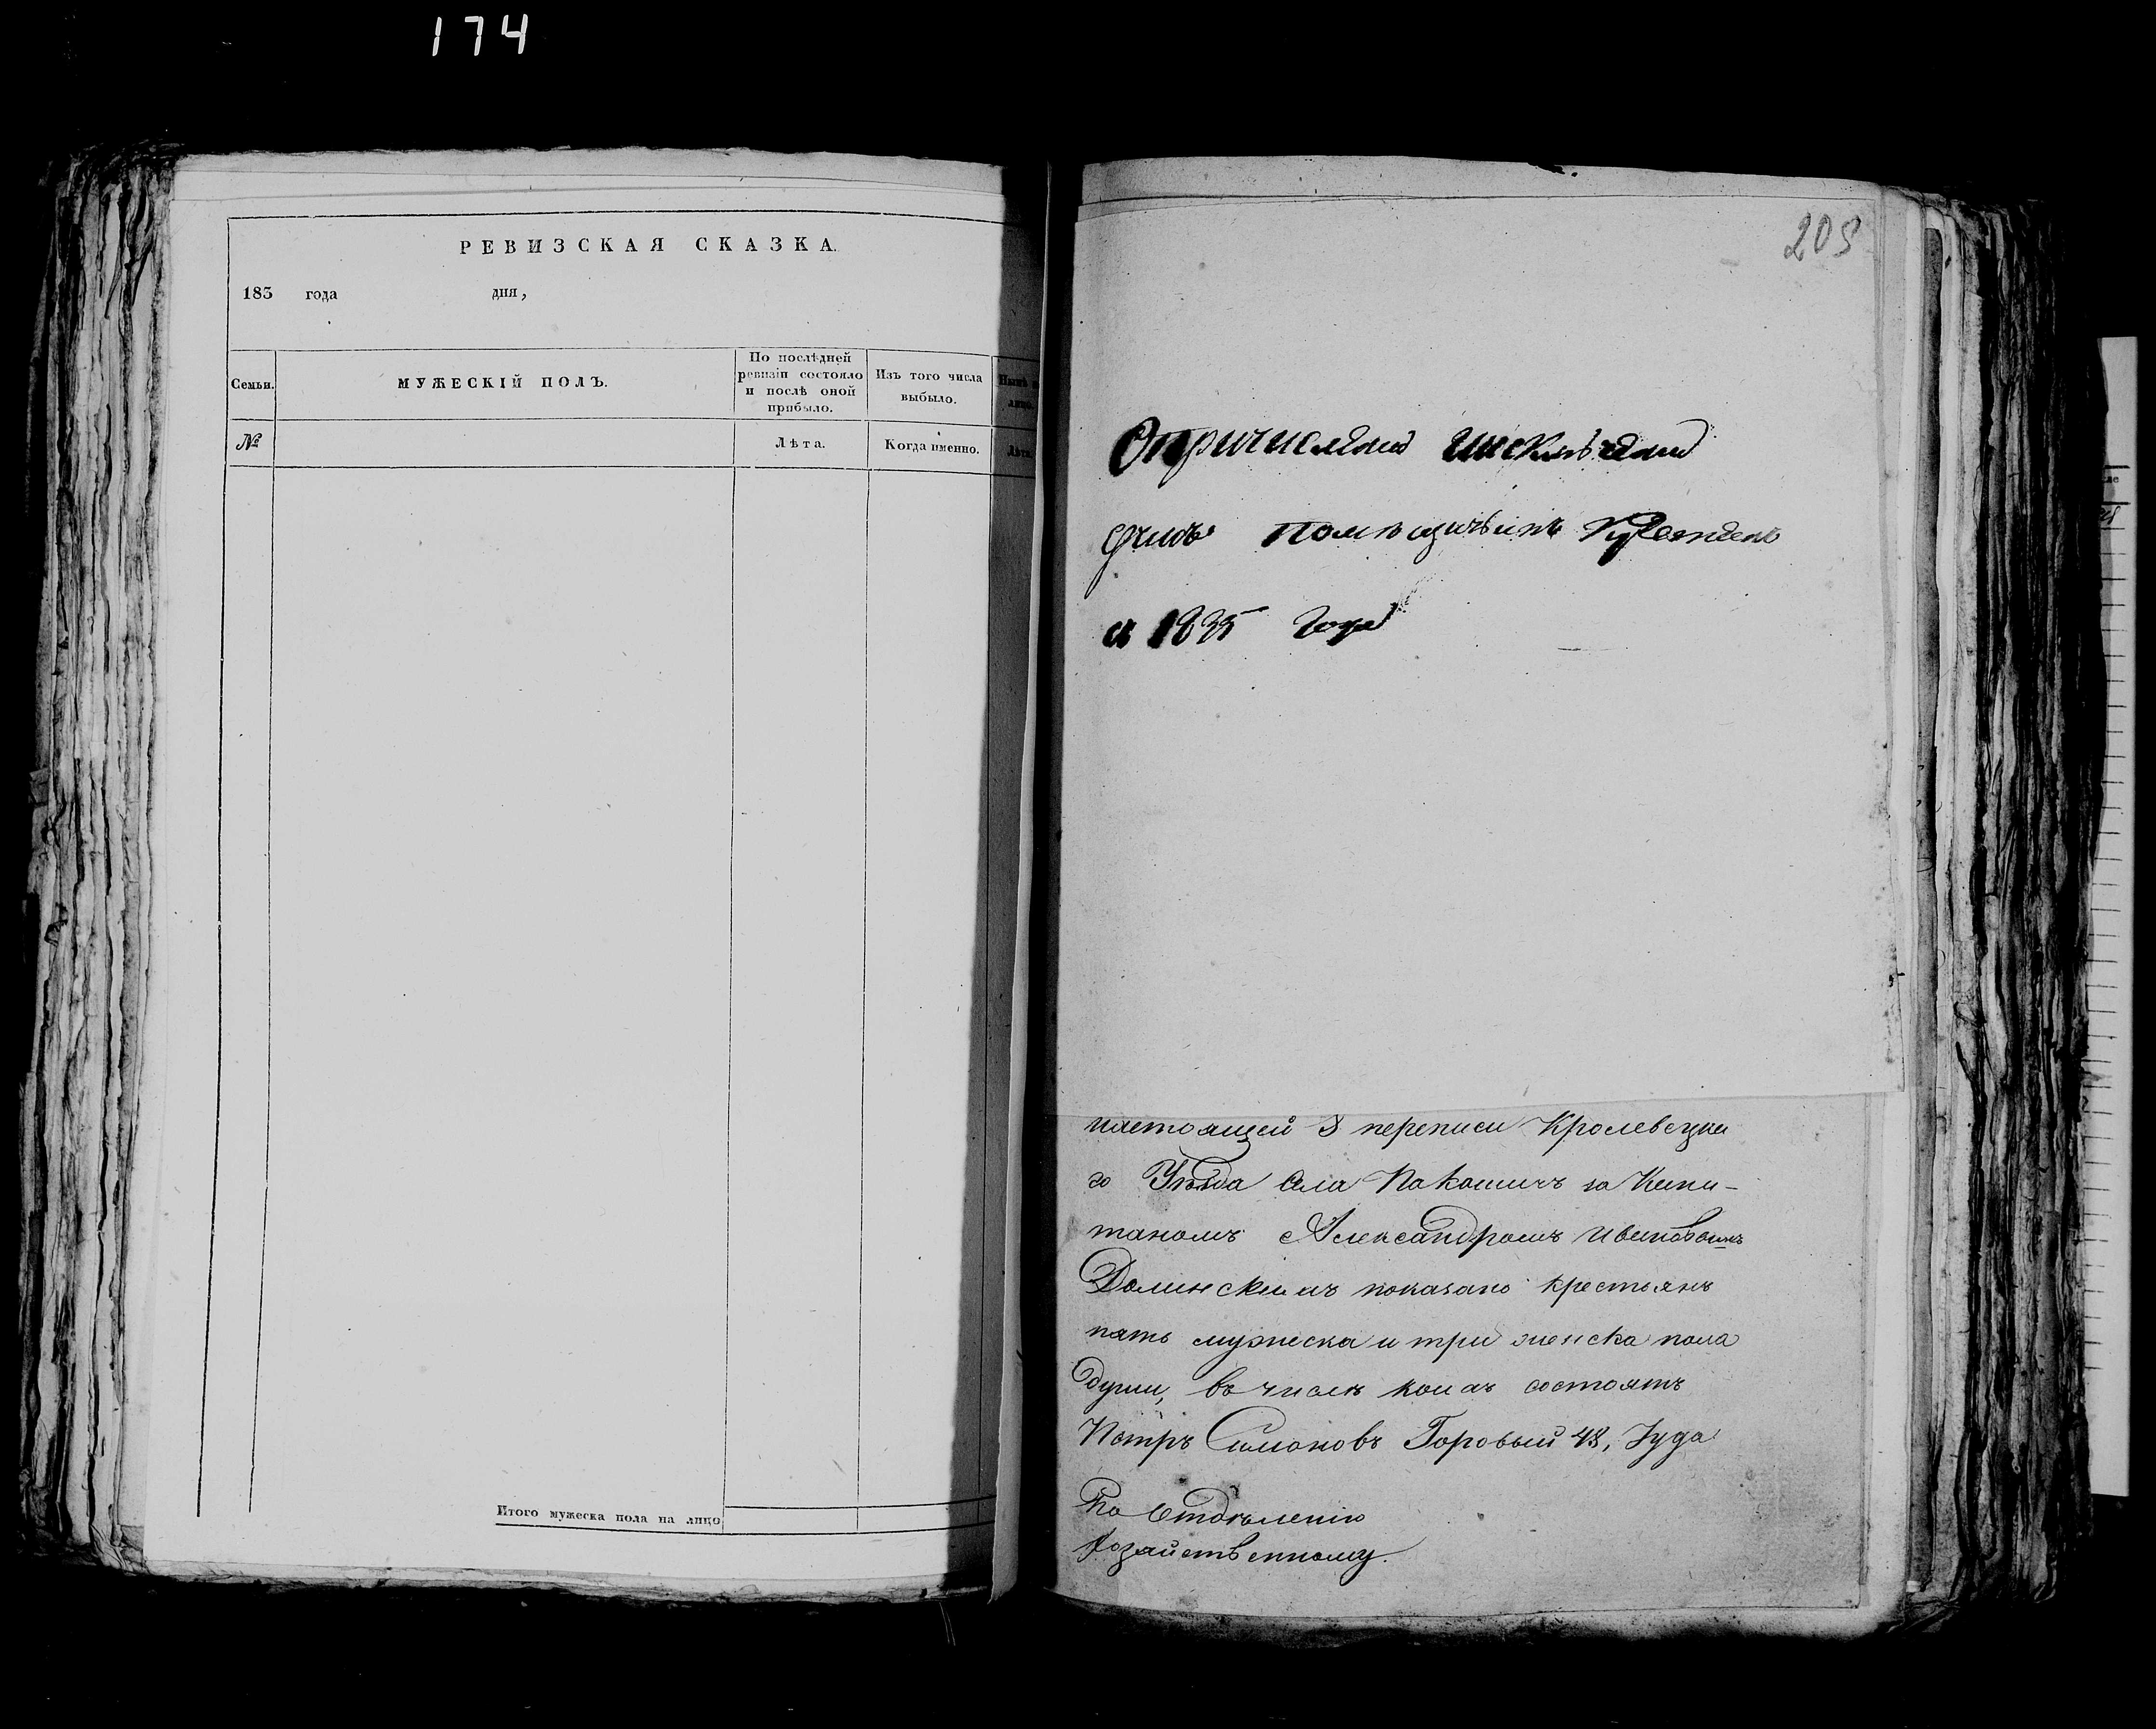 174
РЕВИЗСКАЯ СКАЗКА.
183 года дня,
Семьи.
МУЖЕСКІЙ ПОЛЪ.
По послѣдней ревизіи состояло и послѣ оной прибыло.
Изъ того числа выбыло.
№
Лѣта.
Когда именно.
Итого мужеска пола на лицо
205
О причисленіи и исключеніи
душъ помѣщичьихъ крестьянъ
с 1835 года
настоящей 8 переписи Кролевецка
го Уѣзда села Покошичъ за Капи-
таномъ Александромъ Ивановымъ
Долинскимъ показано крестьянъ
пять мужеска и три женска пола
души, въ числѣ коихъ состоятъ
Петръ Симоновъ Горовый 48, Іуда
По Отдѣленію
Хозяйственному.